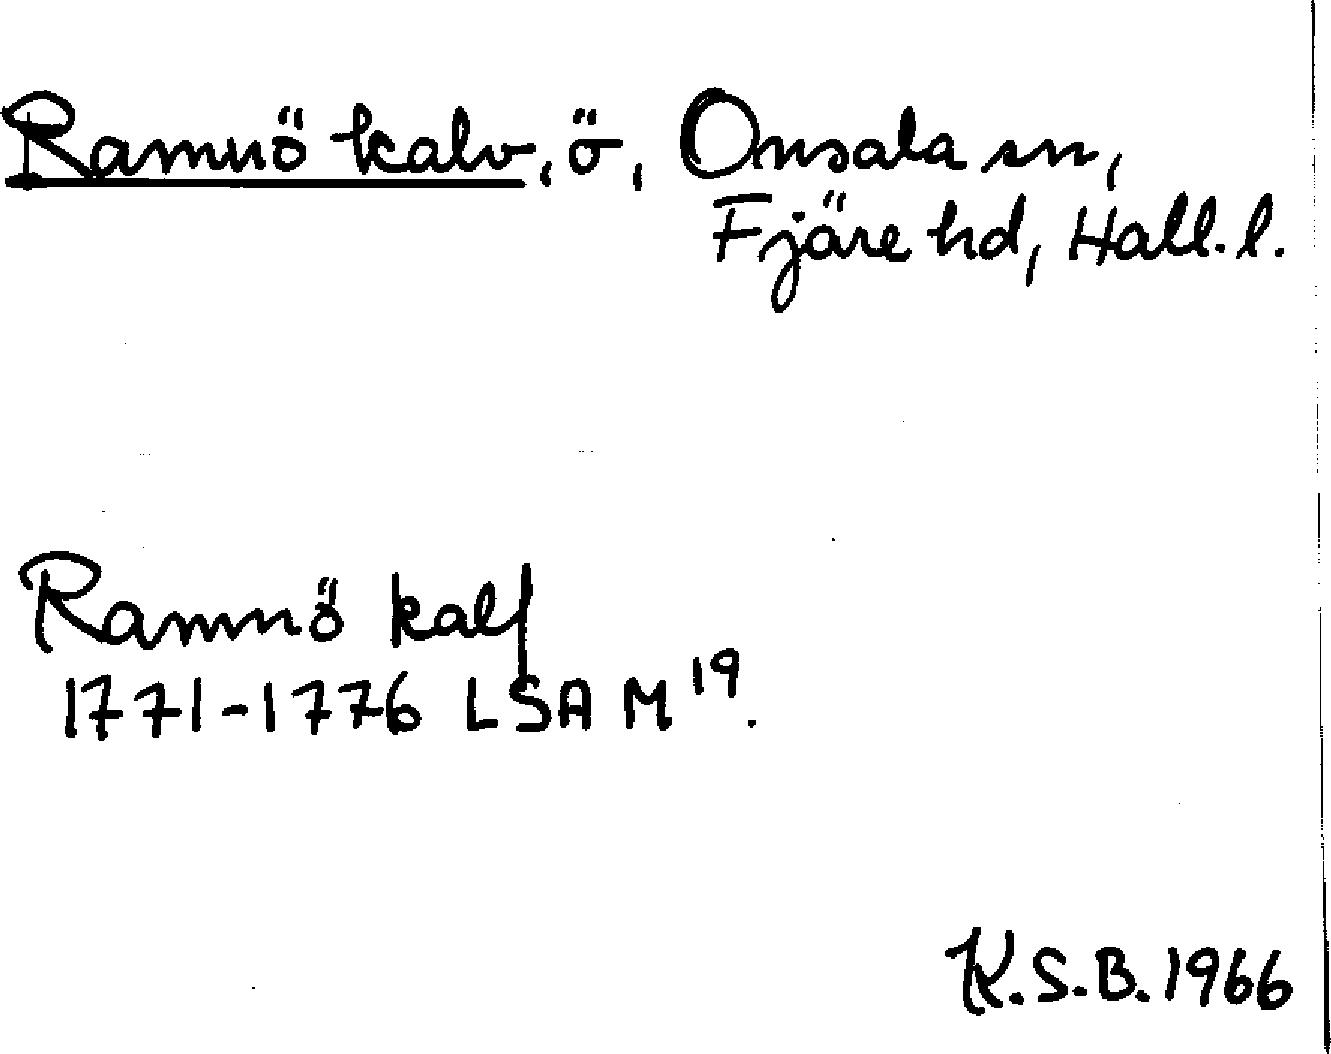 Ramnö kalv, ö, Onsala sn,
Fjäre hd, Hall. l.
Ramnö kalf
1771-1776 LSA M 19.
K.S.B. 1966